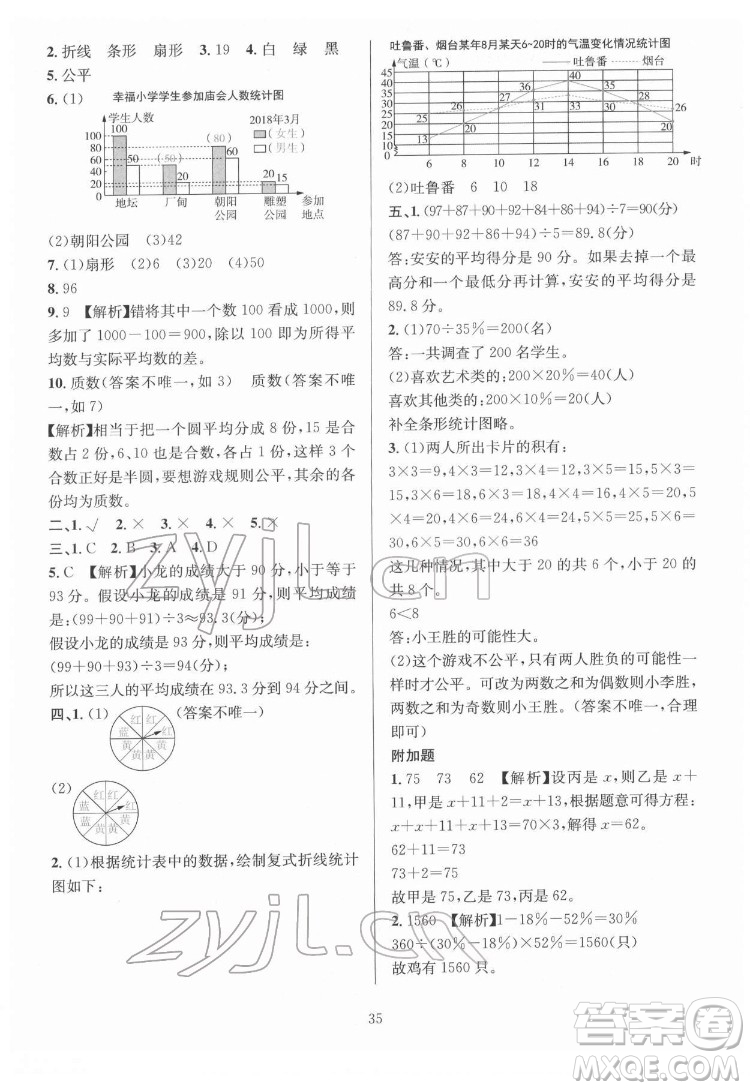 2. 折线 条形 扇形 3. 19 4. 白 绿 黑
5. 公平
6. (1) 幸福小学学生参加庙会人数统计图
学生人数 2018年3月
(女生)
(男生)
100
80
60
50
40
20
15
0
100 50 (50) 50 (80) 60 20 15
地坛 厂甸 朝阳公园 雕塑公园 参加地点
(2)朝阳公园 (3)42
7. (1)扇形 (2)6 (3)20 (4)50
8. 96
9. 9 【解析】错将其中一个数 100 看成 1000,则
多加了 1000-100=900,除以 100 即为所得平
均数与实际平均数的差。
10. 质数(答案不唯一,如 3) 质数(答案不唯
一,如 7)
【解析】相当于把一个圆平均分成 8 份,15 是合
数占 2 份,6、10 是合数各占 1 份,这样,四个
合数正好是半圆,要想游戏规则公平,其余的各
份均为质数。
二、1. √ 2. × 3. × 4. × 5. ×
三、1. C 2. B 3. A 4. D
5. C 【解析】小龙的成绩大于 90 分,小于等于
93 分。假设小龙的成绩是 91 分,则平均成绩
是:(99+90+91)÷3≈93.3(分)
假设小龙的成绩是 93 分,则平均成绩是:
(99+90+93)÷3=94(分)
所以这三人的平均成绩在 93.3 到 94 分之间。
四、1. (1) (答案不唯一)
红 红 红 蓝 蓝 黄 黄 黄
(2)
红 红 红 蓝 蓝 黄 黄
2. (1)根据统计表中的数据,绘制复式折线统计
图如下:
吐鲁番、烟台某年8月某天6~20时的气温变化情况统计图
气温(℃) 吐鲁番 烟台
45
40
35
30
25
20
15
10
5
0
25 26 36 40 35 26
13 20 20
6 8 10 12 14 16 18 20 时
(2)吐鲁番 6 10 18
五、1. (97+87+90+92+84+86+94)÷7=90(分)
(87+90+92+86+94)÷5=89.8(分)
答:安安的平均得分是 90 分。如果去掉一个最
高分和一个最低分再计算,安安的平均得分是
89.8 分。
2. (1)70÷35%=200(名)
答:一共调查了 200 名学生。
(2)喜欢艺术类的:200×20%=40(人)
喜欢其他类的:200×10%=20(人)
补全条形统计图略。
3. (1)两人所出卡片的积有:
3×3=9,4×3=12,5×3=15,6×3=18
3×4=12,4×4=16,5×4=20,6×4=24
3×5=15,4×5=20,5×5=25,6×5=30
3×6=18,4×6=24,5×6=
30,6×6=36
这几种情况,其中大于 20 的共 6 个,小于 20 的
共 8 个。
6<8
答:小王胜的可能性大。
(2)这个游戏不公平,只有两人胜负的可能性一
样时才公平。可以改为两数之和为偶数小李胜,
两数之和为奇数小王胜。(答案不唯一,合理
即可)
附加题
1. 75 73 62 【解析】设丙是 x,则乙是 x+
11,甲是 x+11+2=x+13,根据题意可得方程:
x+x+11+x+13=70×3,解得:x=62。
62+11=73
62+13=75
故甲是 75,乙是 73,丙是 62。
2. 1560 【解析】1-18%-52%=30%
360÷(30%-18%)×52%=1560(只)
故鸡有 1560 只。
35
zyjl.cn
zyjl.cn
答案卷
MXQE.COM